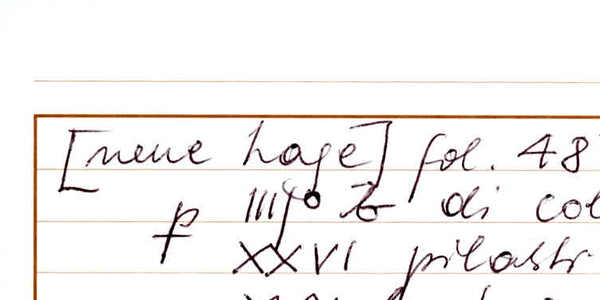 [neue Lage] fol. 48
di col
XXVI pilastr